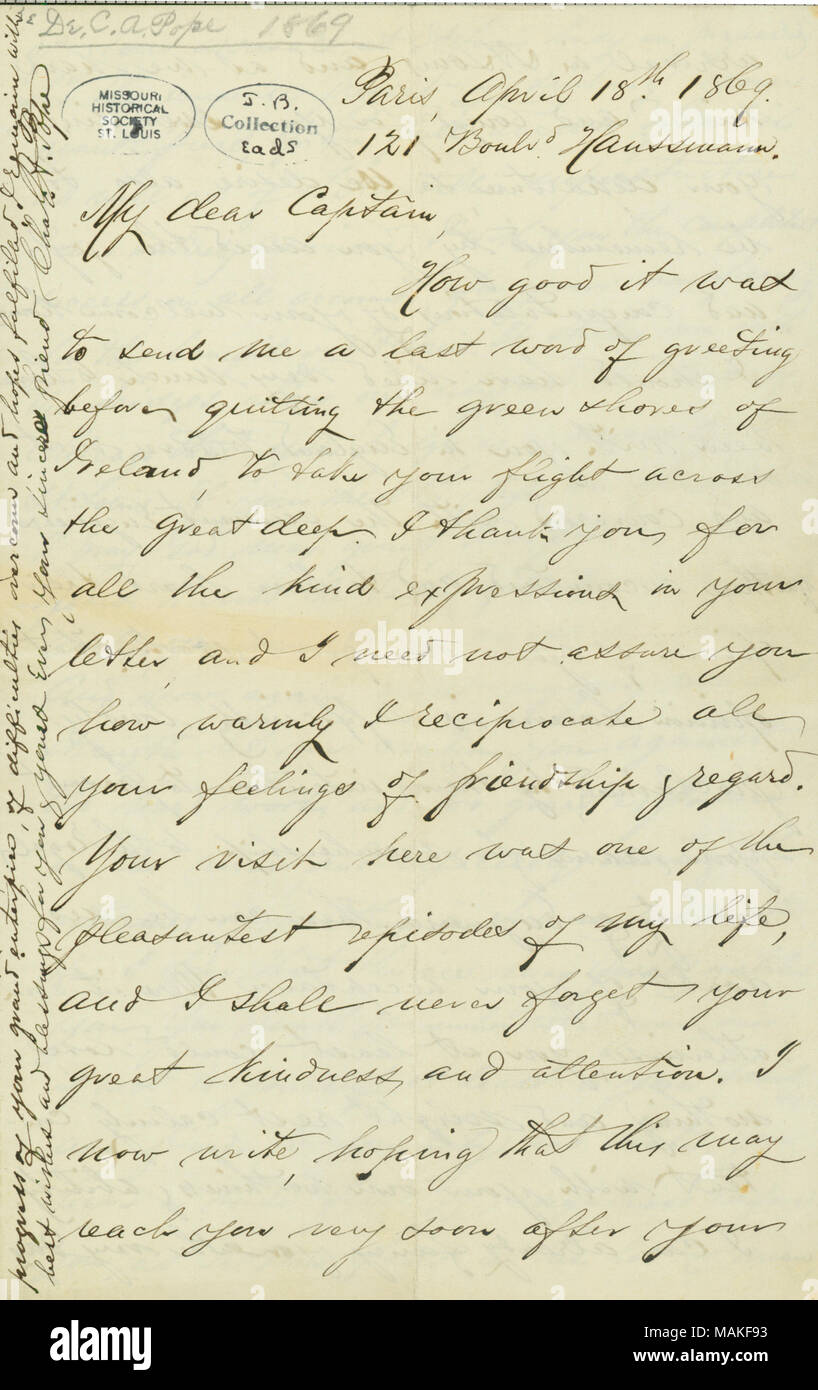 Dr. C. A. Pope 1869
MISSOURI
HISTORICAL
SOCIETY
ST. LOUIS
J. B.
Collection
Eads
Paris, April 18th 1869.
121 Boulvd. Haussmann.
My dear Captain,
How good it was
to send me a last word of greeting
before quitting the green shores of
Ireland, to take your flight across
the great deep. I thank you for
all the kind expressions in your
letter, and I need not assure you
how warmly I reciprocate all
your feelings of friendship & regard.
Your visit here was one of the
pleasantest episodes of my life,
and I shall never forget your
great kindness and attention. I
now write, hoping that this may
reach you very soon after your
progress of your grand enterprise, of difficulties overcome and hopes fulfilled, I remain with
best wishes and blessings for you & yours Ever your sincere friend, Chas. A. Pope
alamy
Image ID: MAKF93
www.alamy.com